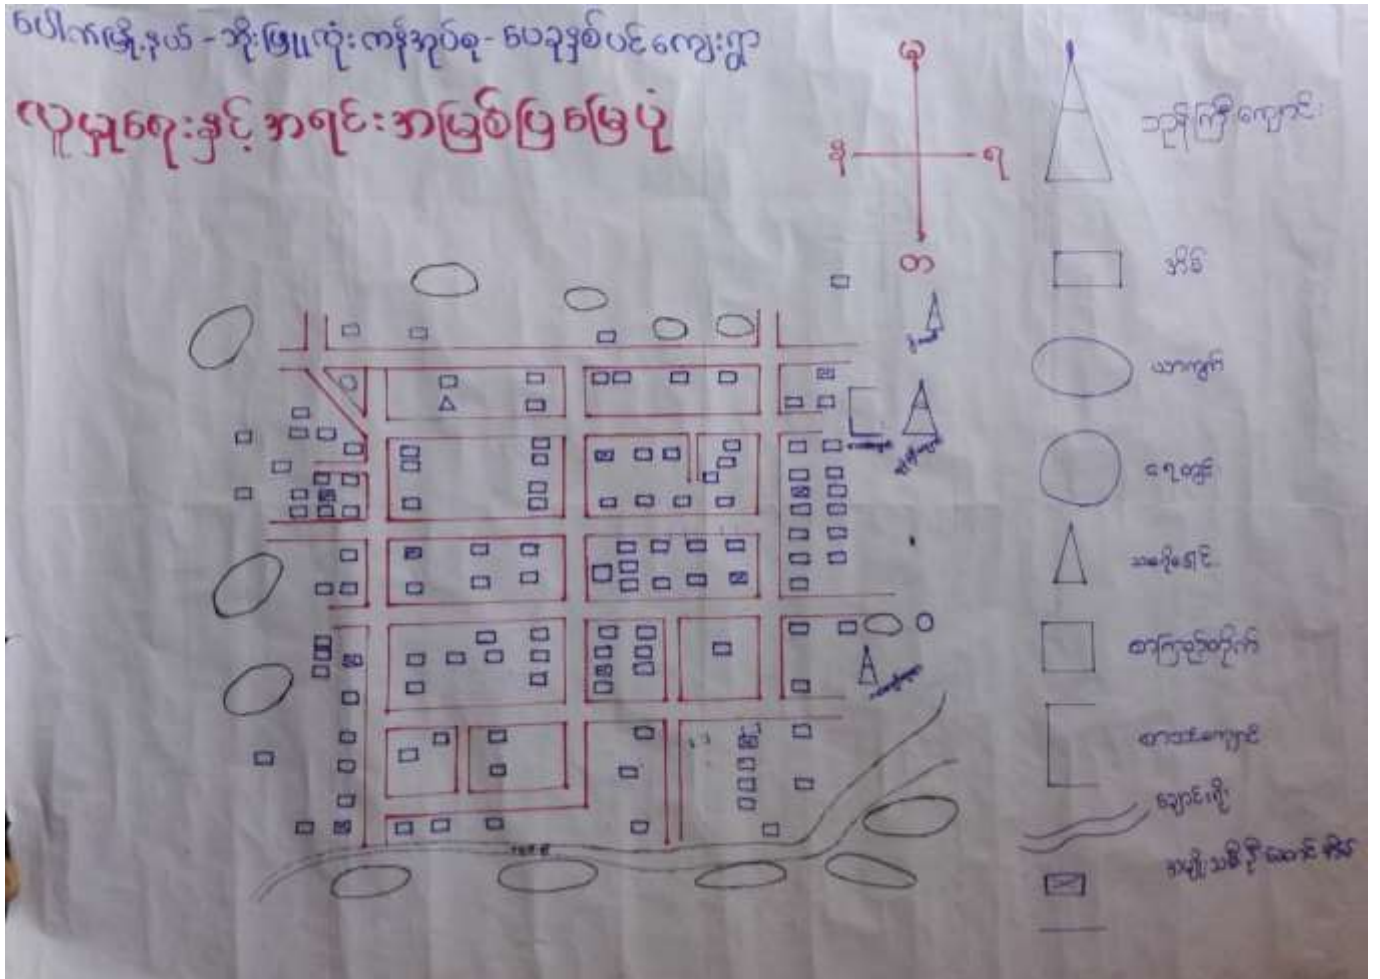 ပေါက်မြို့နယ် - ဘိုးဖြူလုံးကန်အုပ်စု - ပေခုနှစ်ပင်ကျေးရွာ
လူမှုရေးနှင့်အရင်းအမြစ်ပြမြေပုံ
မ
န
ရ
တ
ဘုန်းကြီးကျောင်း
အိမ်
ယာကွက်
ရေတွင်း
စာကြည့်တိုက်
စာသင်ကျောင်း
ချောင်းရိုး
အမျိုးသမီးဦးဆောင်အိမ်